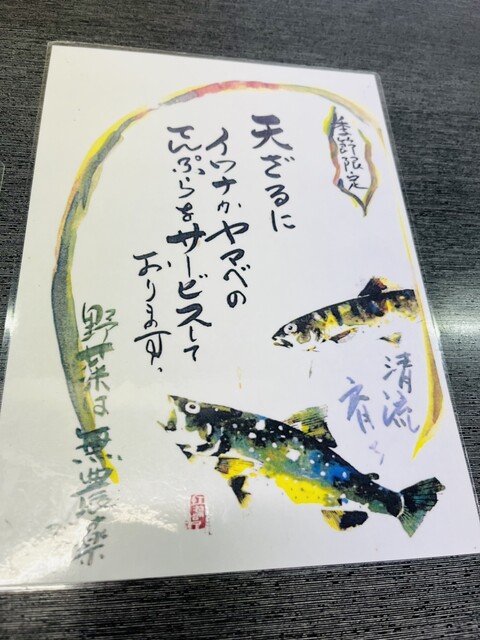 季節限定
天ざるに
イワナかヤマベの
てんぷらをサービスして
おります、
清流
育ち
野菜は無農薬